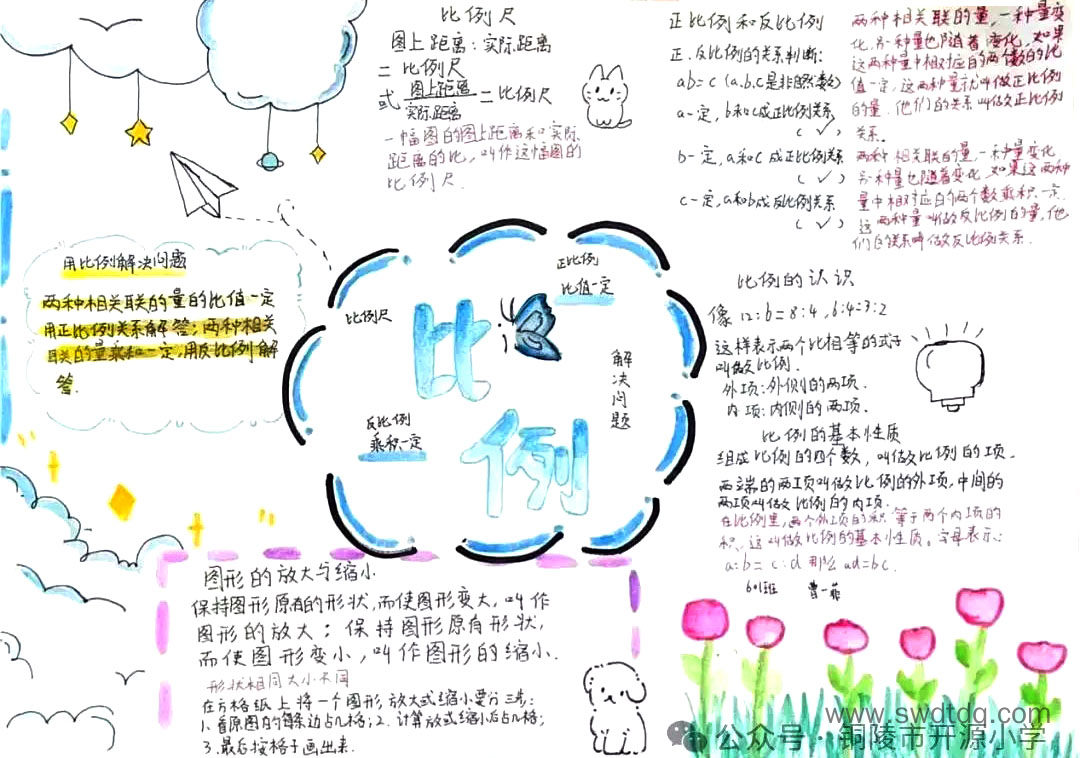 比例尺
图上距离:实际距离
=比例尺
或 图上距离/实际距离 =比例尺
一幅图的图上距离和实际
距离的比,叫作这幅图的
比例尺.
正比例和反比例
正.反比例的关系判断:
ab=c(a.b.c是非0自然数)
a一定,b和c成正比例关系
(✓)
b一定,a和c成正比例关系
(✓)
c一定,a和b成反比例关系
(✓)
两种相关联的量,一种量变
化,另一种量也随着变化,如果
这两种量中相对应的两个数的比
值一定,这两种量就叫做正比例
的量.他们的关系叫做正比例
关系.
两种相关联的量,一种量变化
另一种量也随着变化,如果这两种
量中相对应的两个数乘积一定
这两种量叫做反比例的量,他
们的关系叫做反比例关系.
用比例解决问题
两种相关联的量的比值一定
用正比例关系解答;两种相关
联的量乘积一定,用反比例解
答.
比例
比例尺
正比例
比值一定
解决问题
反比例
乘积一定
比例的认识
像12:6=8:4,6:4=3:2
这样表示两个比相等的式子
叫做比例.
外项:外侧的两项.
内项:内侧的两项.
比例的基本性质
组成比例的四个数,叫做比例的项.
两端的两项叫做比例的外项,中间的
两项叫做比例的内项.
在比例里,两个外项的积等于两个内项的
积,这叫做比例的基本性质。字母表示:
a:b=c:d 那么ad=bc.
601班 曹一菲
图形的放大与缩小
保持图形原有的形状,而使图形变大,叫作
图形的放大;保持图形原有形状,
而使图形变小,叫作图形的缩小.
形状相同大小不同
在方格纸上将一个图形放大或缩小要分三步:
1.看原图的每条边占几格;2.计算放或缩小后占几格;
3.最后按格子画出来.
www.swdtdq.com
公众号·铜陵市开源小学